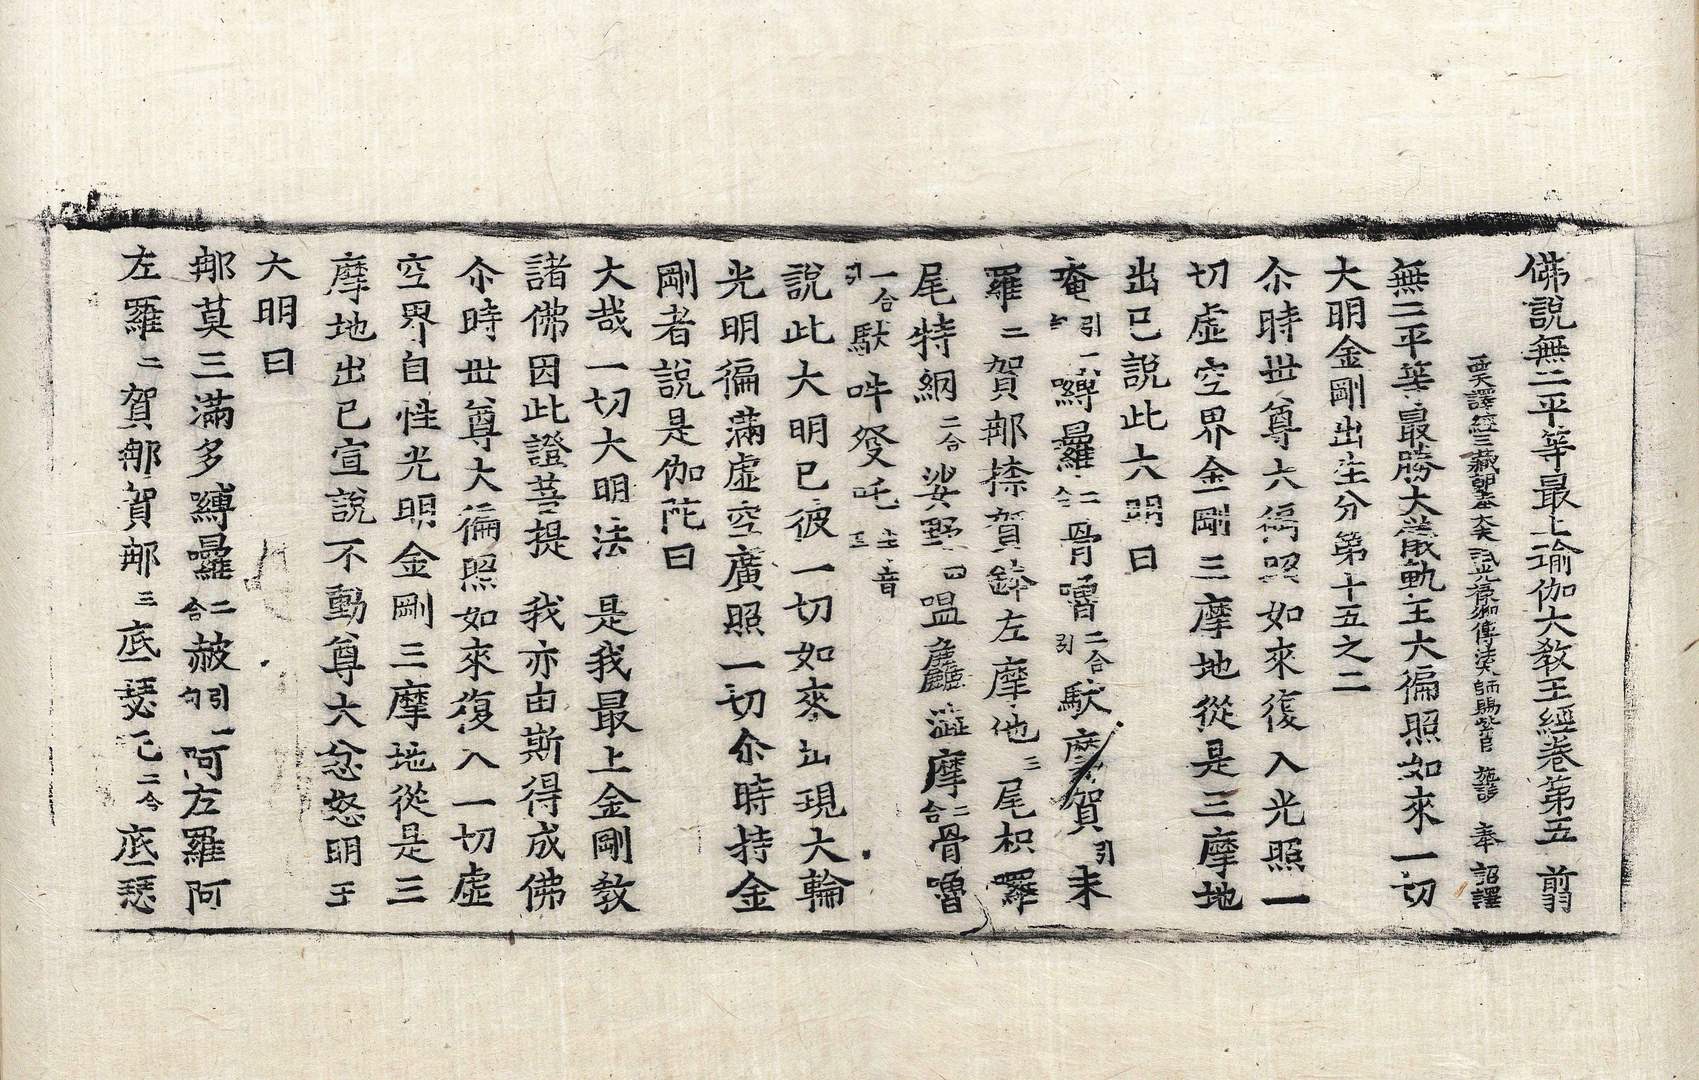 佛說無二平等最上瑜伽大教王經卷第五 翦
西天譯經三藏朝奉大夫試光祿卿傳法大師賜紫臣 施護 奉 詔譯
無二平等最勝大儀軌王大徧照如來一切
大明金剛出生分第十五之二
尒時世尊大徧照如來復入光照一
切虛空界金剛三摩地從是三摩地
出已說此大明曰
唵引一嚩囉二合骨嚕二合引馱摩賀引
羅二賀那捺賀鉢左摩他三尾枳囉
尾特網二合娑野四嗢 澁摩二合骨嚕
二合引馱吽癹吒半音五
說此大明已彼一切如來出現大輪
光明徧滿虛空廣照一切尒時持金
剛者說是伽陀曰
大哉一切大明法 是我最上金剛教
諸佛因此證菩提 我亦由斯得成佛
尒時世尊大徧照如來復入一切虛
空界自性光明金剛三摩地從是三
摩地出已宣說不動尊大忿怒明王
大明曰
那莫三滿多嚩囉二合赧引一阿左羅阿
左羅二賀那賀那三底瑟吒二合底瑟